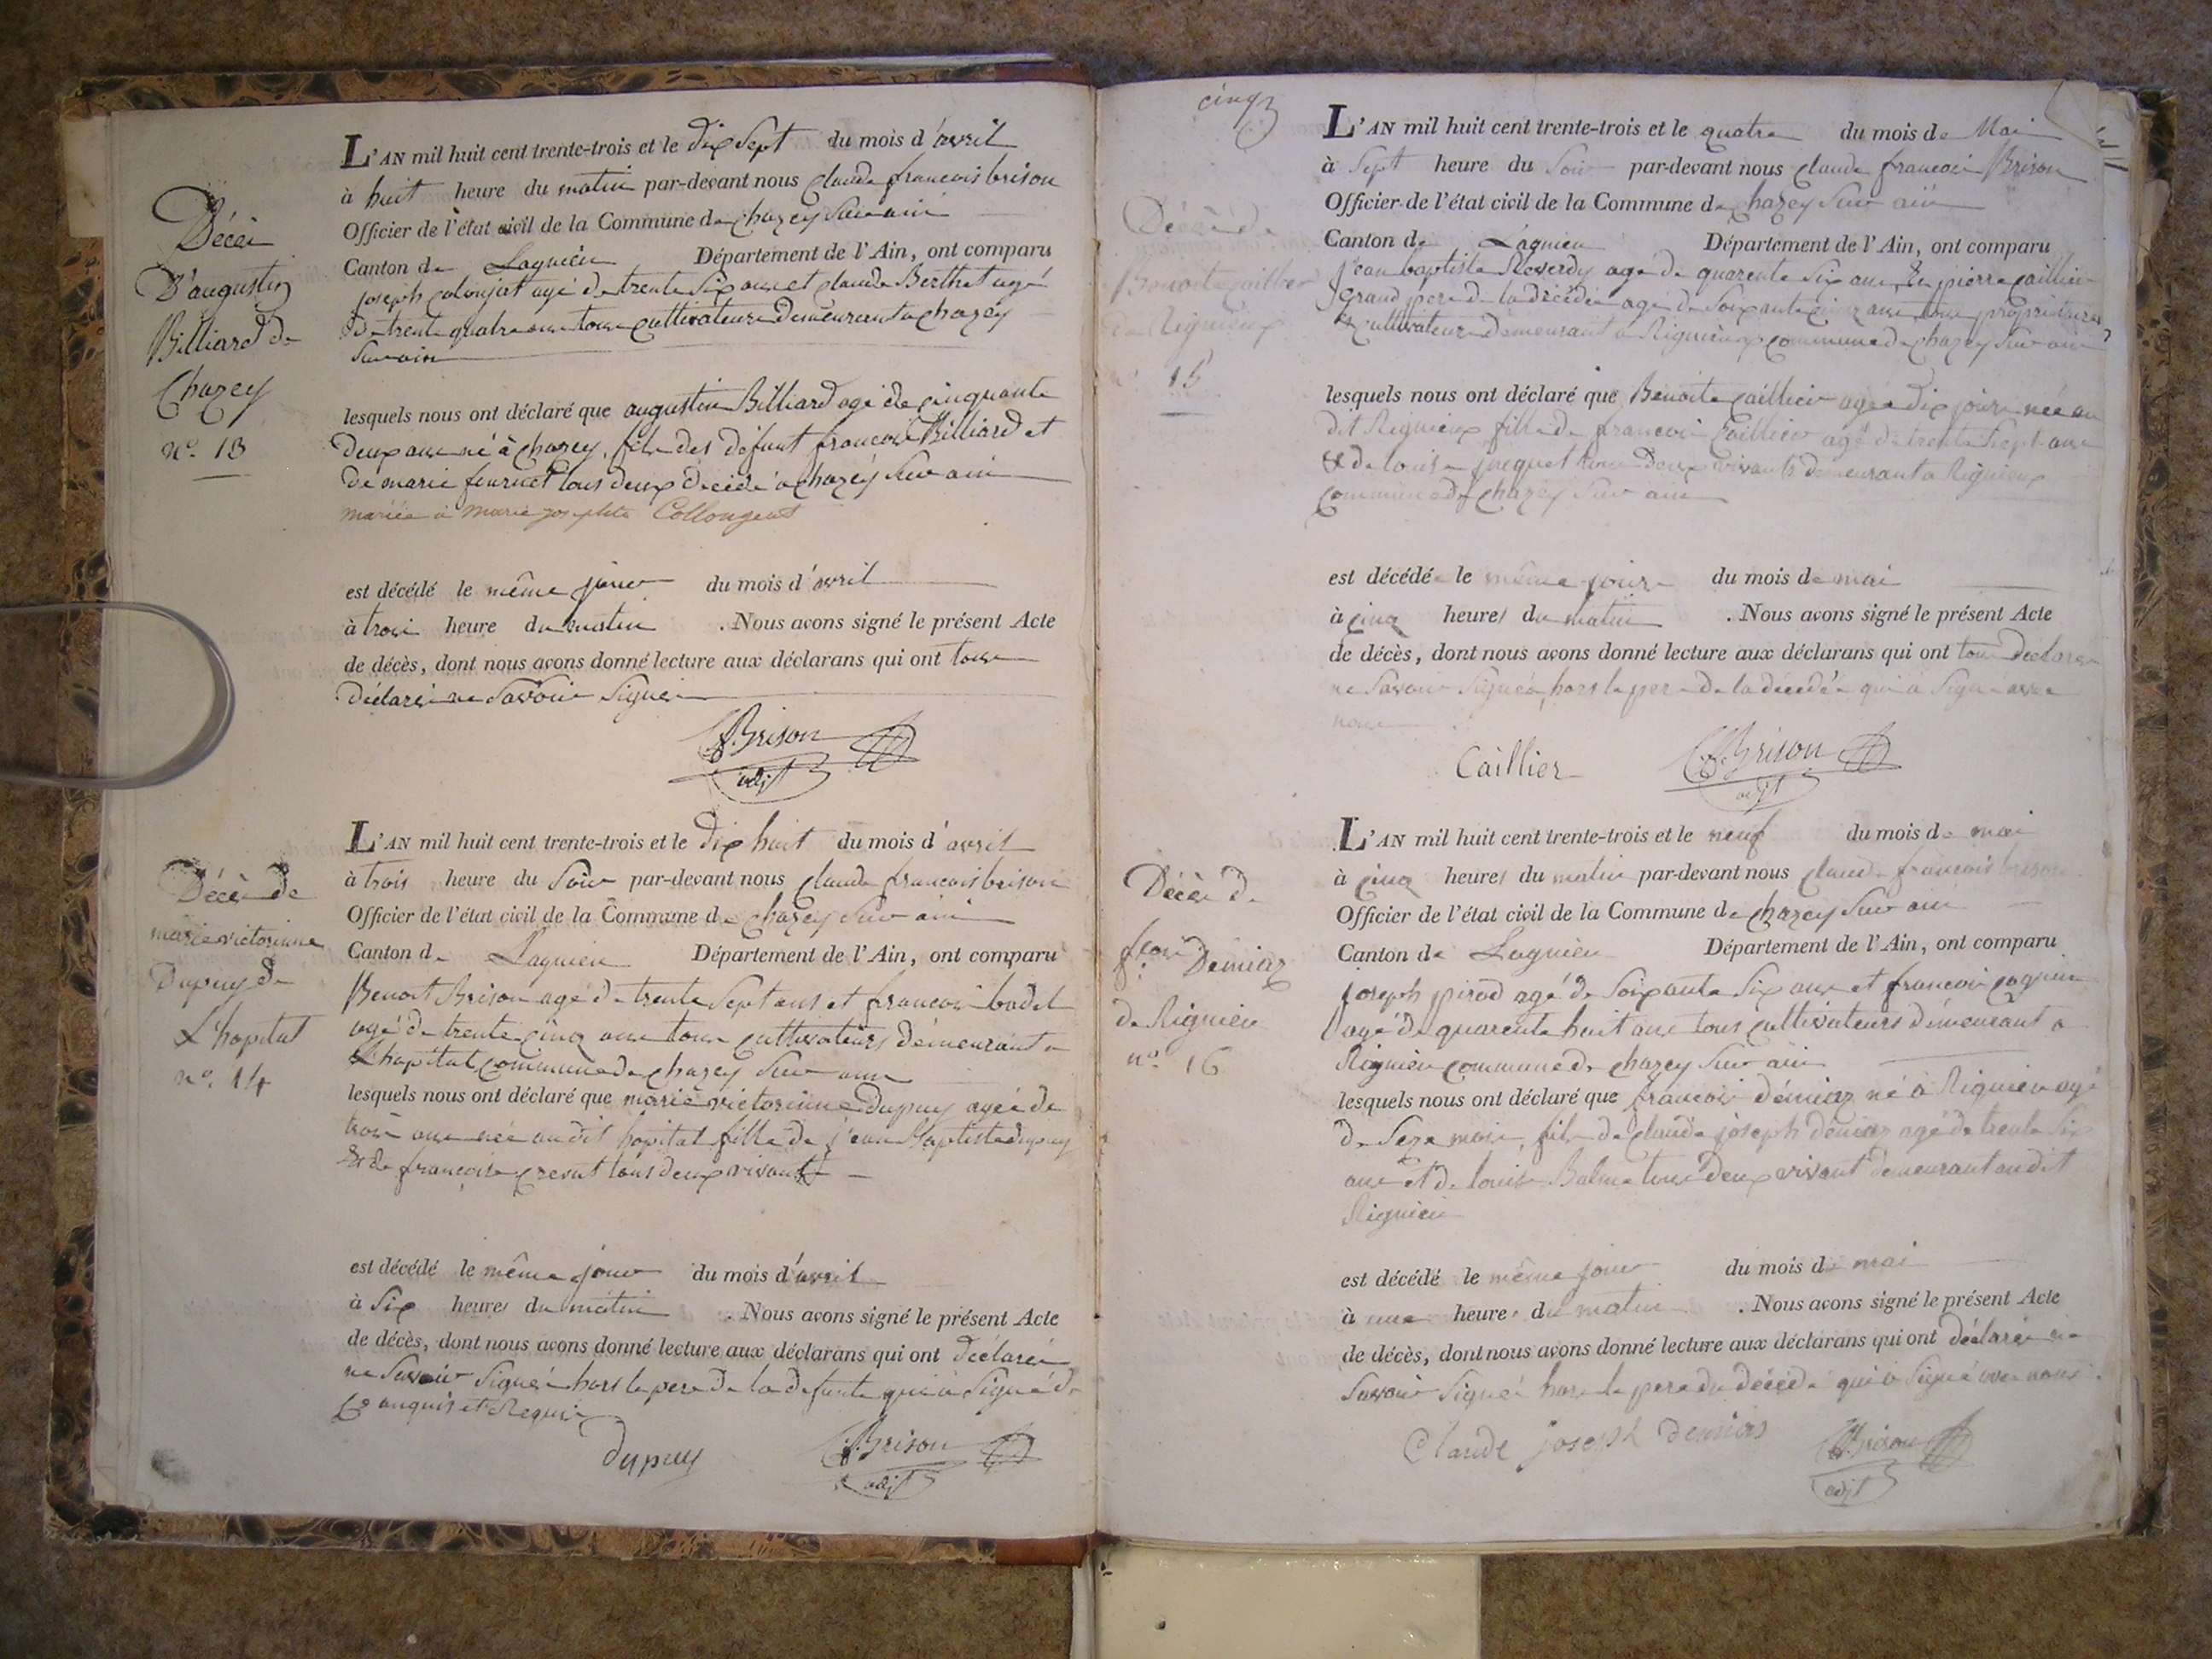 Décès
D'augustin
Billiard de
Chazey
n°. 13
L'AN mil huit cent trente-trois et le dix Sept du mois d'avril
à huit heure du matin par-devant nous claude francois brison
Officier de l'état civil de la Commune de chazey Sur ain
Canton de Lagnieu Département de l'Ain, ont comparu
joseph colonjat agé de trente Six ans et claude Berthet agé
de trente quatre ans tous cultivateurs demeurant a chazey
Sur ain
lesquels nous ont déclaré que augustin Billiard agé de cinquante
deux ans né à chazey, fils des défunt francois Billiard et
de marie tous deux décédé a chazey Sur ain
mariée à marie josephte Collongeat
est décédé le même jour du mois d'avril
à trois heure du matin . Nous avons signé le présent Acte
de décès, dont nous avons donné lecture aux déclarans qui ont tous
déclaré ne Savoir Signer
Brison
adjt
Décès de
marie victorinne
Dupuy de
L'hopital
n°. 14
L'AN mil huit cent trente-trois et le dix huit du mois d'avril
à trois heure du Soir par-devant nous claude francois brison
Officier de l'état civil de la Commune de chazey Sur ain
Canton de Lagnieu Département de l'Ain, ont comparu
Benoit Brison agé de trente Sept ans et francois badel
agé de trente cinq ans tous cultivateurs démeurant a
L'hopital commune de chazey Sur ain
lesquels nous ont déclaré que marie victorinne Dupuy agée de
trois ans née au dit hopital fille de jean Baptiste dupuy
& de francoise tous deux vivants
est décédé le même jour du mois d'avril
à Six heures du matin . Nous avons signé le présent Acte
de décès, dont nous avons donné lecture aux déclarans qui ont déclaré
ne Savoir Signer hors le pere de la defunte qui a Signé de
ce anquis et Requis
dupuy
Brison
adjt
cinq
Décès de
Benoite caillier
de Rignieux
n° 15
L'AN mil huit cent trente-trois et le quatre du mois de Mai
à Sept heure du Soir par-devant nous claude francois Brison
Officier de l'état civil de la Commune de chazey Sur ain
Canton de Lagnieu Département de l'Ain, ont comparu
jean baptiste Reverdy agé de quarente Six ans & pierre caillier
grand pere de la décédée agé de Soixante cinq ans tous propriétaires
& cultivateurs démeurant a Rignieux commune de chazey Sur ain
lesquels nous ont déclaré que Benoite caillier agée dix jours née au
dit Rignieux fille de francois Caillier agé de trente Sept ans
& de louise tous deux vivants démeurant a Rignieux
commune de chazey Sur ain
est décédée le même jour du mois de mai
à cinq heures du matin . Nous avons signé le présent Acte
de décès, dont nous avons donné lecture aux déclarans qui ont tous déclaré
ne Savoir Signer, hors le pere de la décédée qui a Signé avec
nous
Caillier
Brison
adjt
Décès de
fcois Demiaz
de Rignieu
n°. 16
L'AN mil huit cent trente-trois et le neuf du mois de mai
à cinq heures du matin par-devant nous claude francois brison
Officier de l'état civil de la Commune de chazey Sur ain
Canton de Lagnieu Département de l'Ain, ont comparu
joseph pirod agé de Soixante Six ans et francois
agé de quarente huit ans tous cultivateurs démeurant a
Rignieu commune de chazey Sur ain
lesquels nous ont déclaré que francois démiaz né à Rignieu agé
de Seze mois, fils de claude joseph démiaz agé de trente Six
ans et de louise Balme tous deux vivant demeurant au dit
Rignieu
est décédé le même jour du mois de mai
à une heure du matin . Nous avons signé le présent Acte
de décès, dont nous avons donné lecture aux déclarans qui ont déclaré ne
Savoir Signer hors le pere du décédé qui a Signé avec nous
Claude joseph demias
Brison
adjt